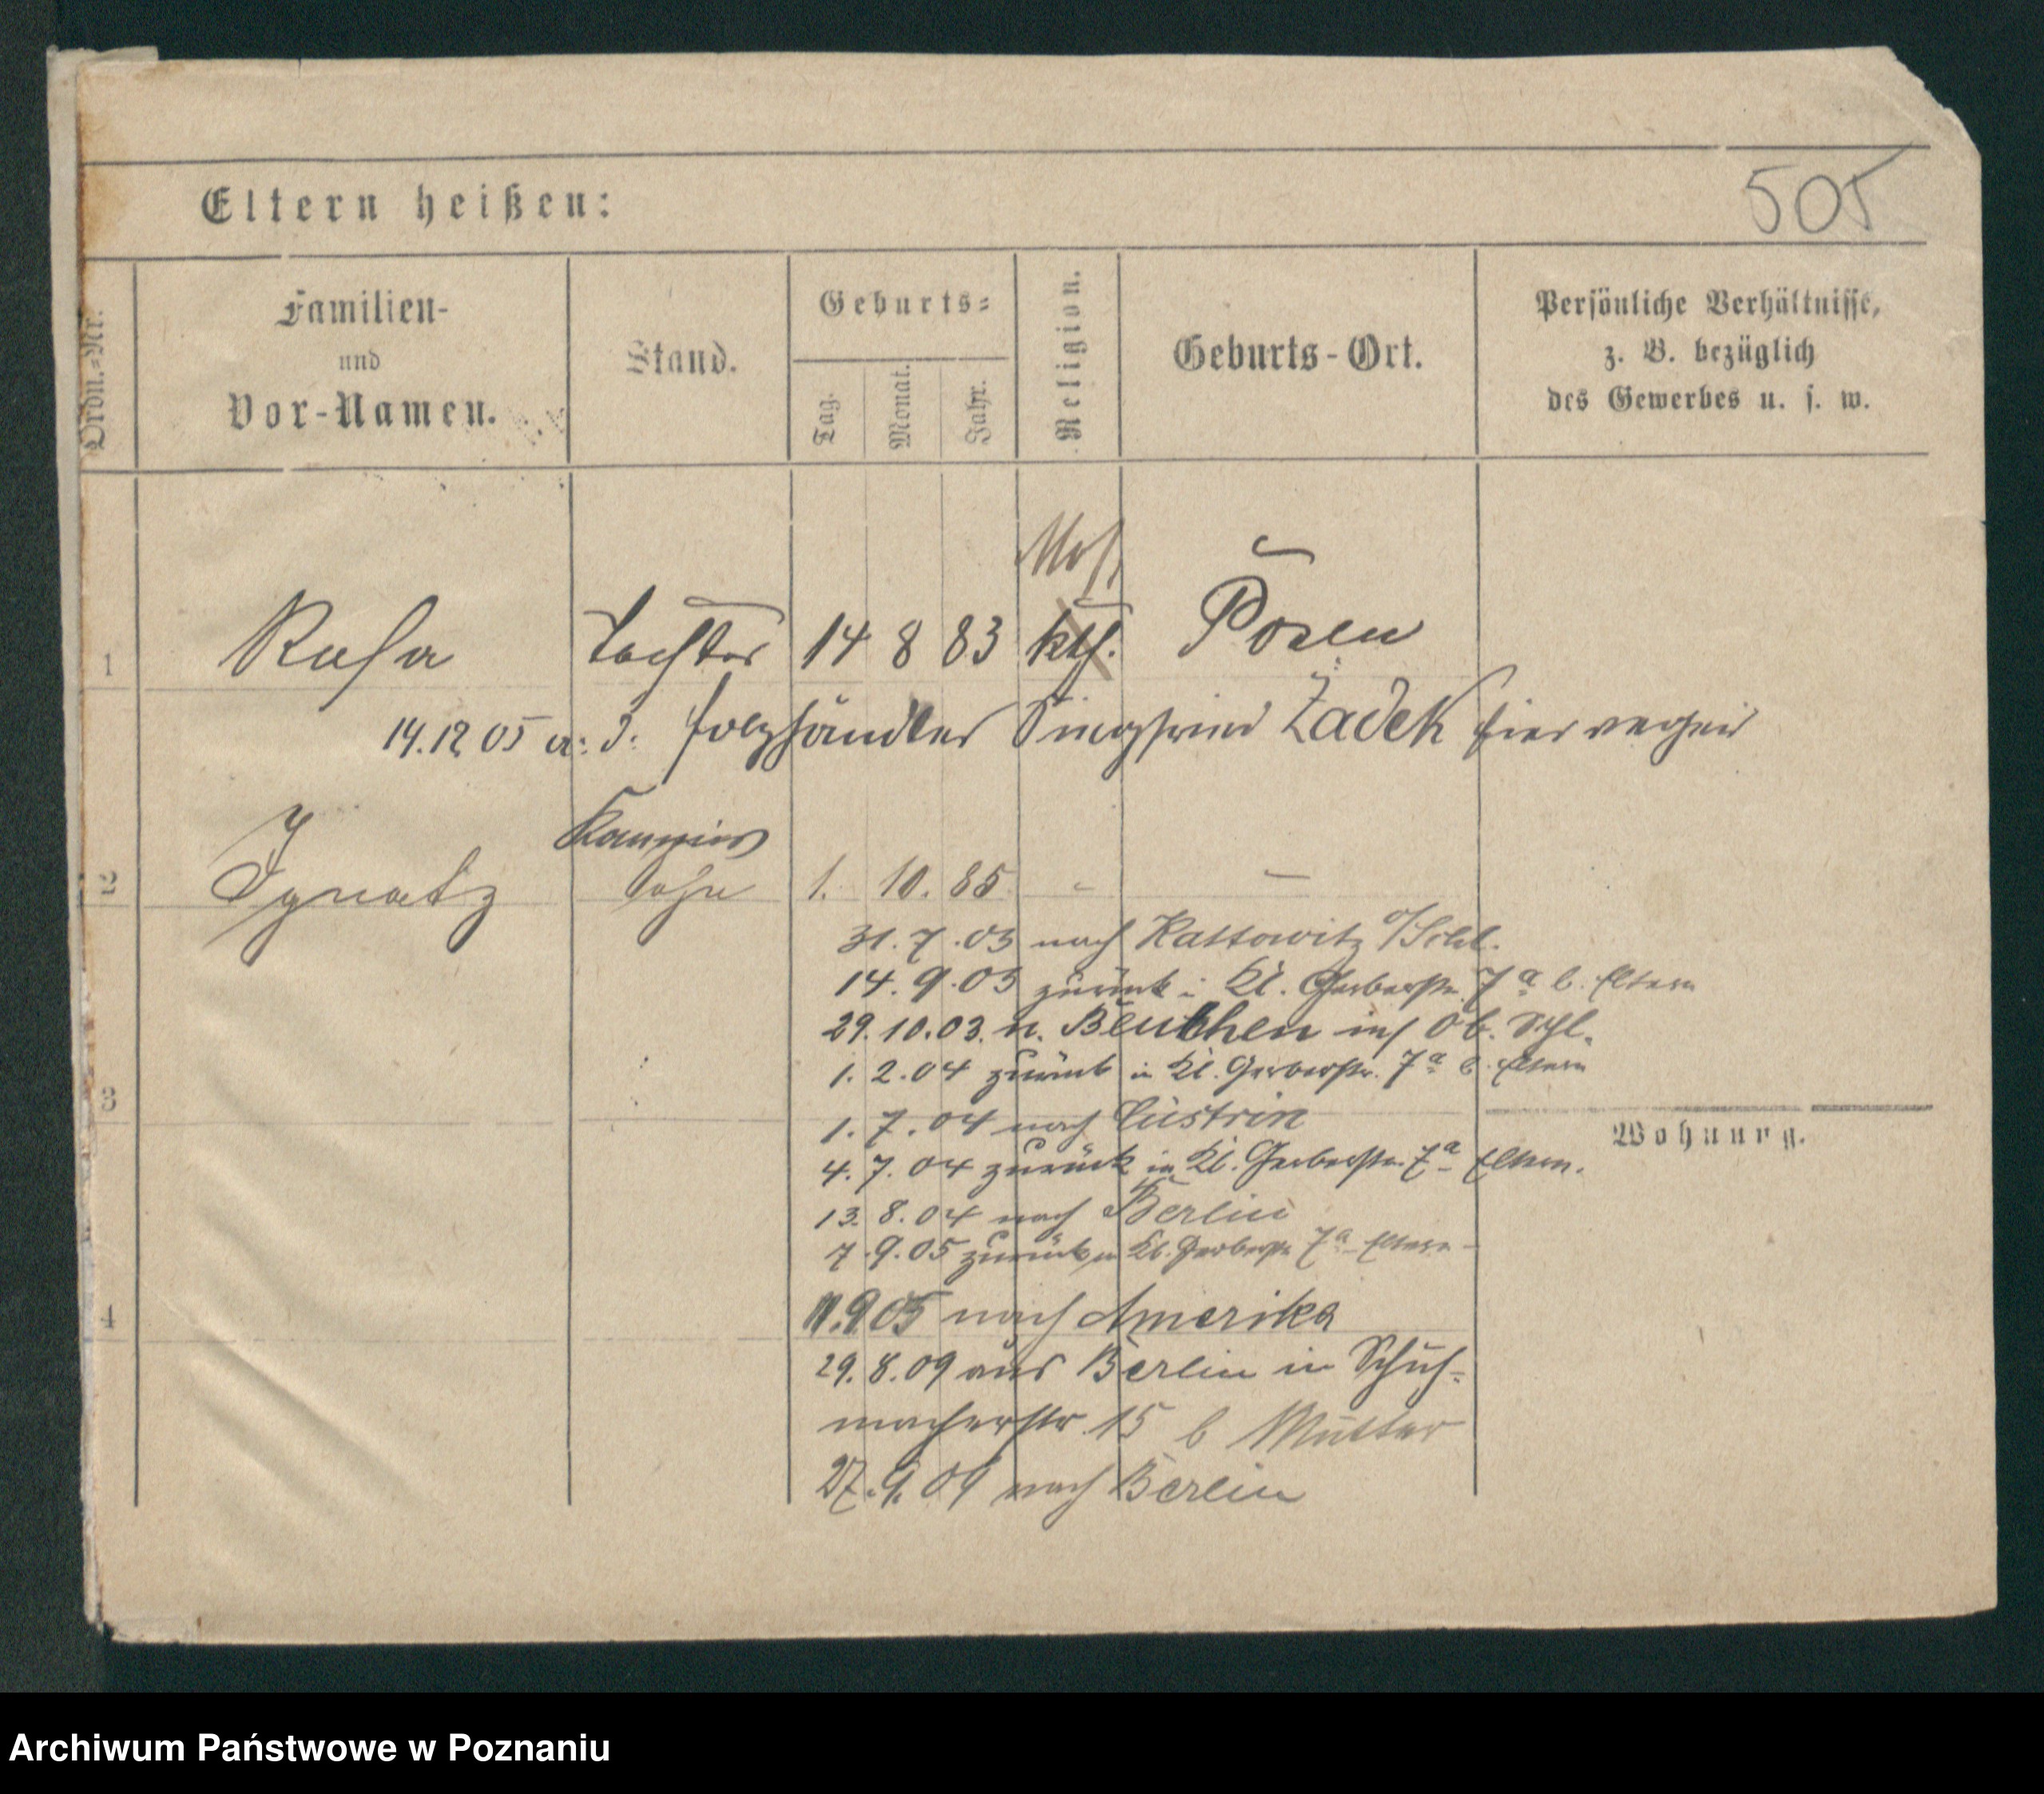 505
Eltern heißen:
Ordn.-Nr.
Familien-
und
Vor-Namen.
Stand.
Geburts-
Tag.
Monat.
Jahr.
Religion.
Geburts-Ort.
Persönliche Verhältnisse,
z. B. bezüglich
des Gewerbes u. s. w.
Mos.
1 Rosa Tochter 14 8 83 kth. Posen
14.12 05 a. d. Holzhändler Siegfried Zadek hier verheir
Kommis
2 Ignatz Sohn 1. 10. 85 " —
31. 7. 03 nach Kattowitz O/Schl.
14. 9. 03 zurück i Kl. Gerberstr. 7a b. Eltern
29. 10. 03. n. Beuthen in/ Ob. Schl.
1. 2. 04 zurück in Kl. Gerberstr. 7a b. Eltern
3
1. 7. 04 nach Cüstrin
Wohnung.
4. 7. 04 zurück in Kl. Gerberstr. 7a Eltern.
13. 8. 04 nach Berlin
7. 9. 05 zurück in Kl. Gerberstr 7a Eltern
4 11. 9. 05 nach Amerika
29. 8. 09 aus Berlin in Schuh-
macherstr. 15 b Mutter
27. 9. 09 nach Berlin
Archiwum Państwowe w Poznaniu